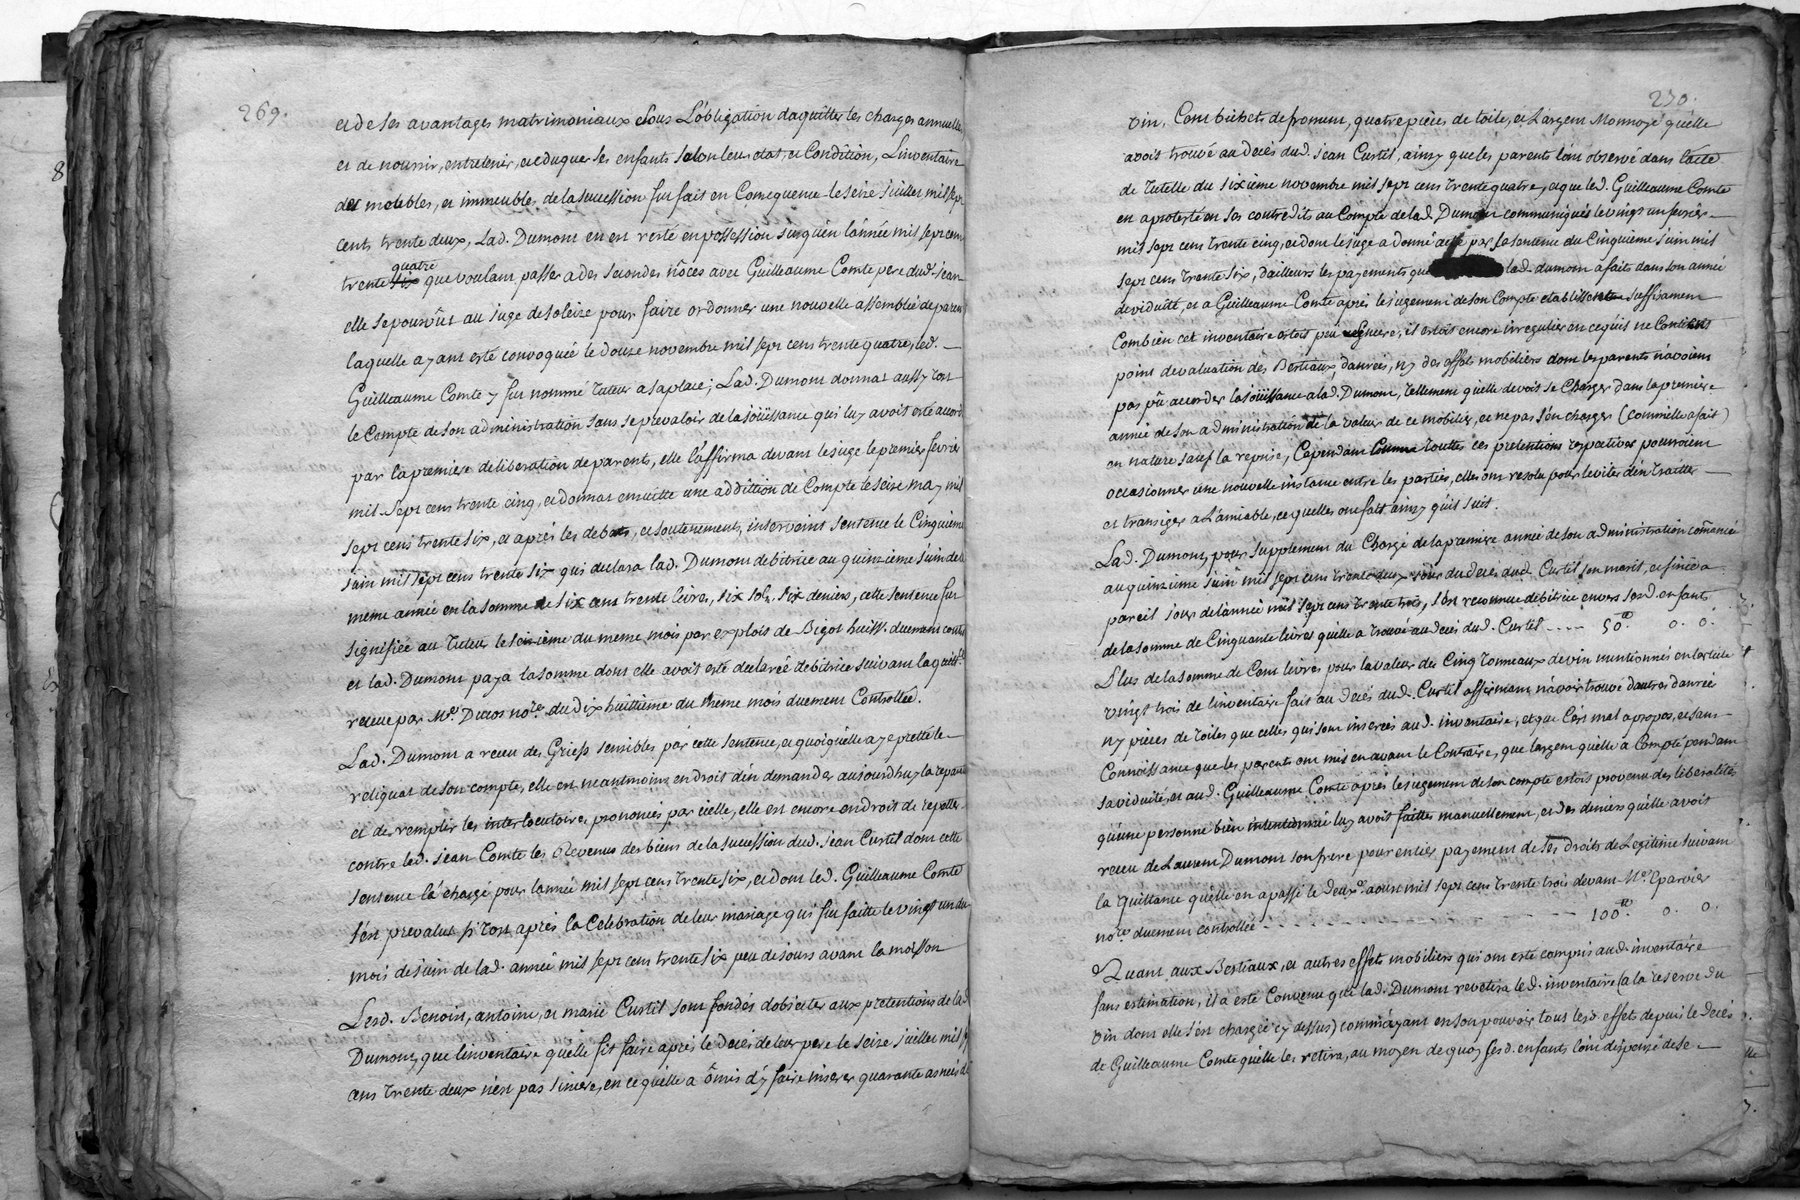 269.
et de ses avantages matrimoniaux sous L'obligation daquitter les charges annuelles
et de nourrir, entretenir, et eduquer ses enfants selon leur etat, et Condition, Linventaire
des meubles, et immeubles de la succession fut fait en Consequence le seize juillet mil sept
cents trente deux, Lad. Dumont en est resté en possession jusqu'en l'année mil sept cens
trente six quatre que voulant passer a des secondes nôces avec Guilleaume Comte pere dud. jean
elle se pourvût au juge de soleize pour faire ordonner une nouvelle assemblée de parens
laquelle ayant esté convoquée le douze novembre mil sept cens trente quatre, led.
Guilleaume Comte y fut nommé tuteur a sa place; Lad. Dumont donnat aussy tost
le Compte de son administration sans se prevaloir de la joüissance qui luy avoit esté accord
par la premiere deliberation de parents, elle l'affirma devant le juge le premier fevrier
mil sept cens trente cinq, et donnat ensuitte une addition de Compte le seize may mil
sept cens trente six, et après les debats, et soutenements, intervaint sentence le Cinquieme
juin mil sept cens trente six qui declara lad. Dumont debitrice au quinzieme juin de la
meme année en la somme de six cens trente livres, six sols, six deniers, cette sentence fut
signifiée au Tuteur le seizieme du meme mois par exploit de Bigot huiss. duement cont.
et lad. Dumont paya la somme dont elle avoit esté declarée debitrice suivant la quitt.ce
receue par Me. Ducos nore. du dix huittieme du meme mois duement Controllée.
Lad. Dumont a receu des Griefs sensibles par cette sentence, et quoiqu'elle aye prettée le
reliquat de son compte, elle est neantmoins en droit d'en demander aujourdhuy la repara
et de remplir les interlocutoires prononcés par icelle, elle est encore en droit de repetter
contre led. jean Comte les Revenus des biens de la succession dud. jean Curtil dont cette
sentence l'a chargé pour l'année mil sept cens trente six, et dont led. Guilleaume Comte
s'est prevalus si tost après la Celebration de leur mariage qui fut faitte le vingt un du
mois de juin de lad. année mil sept cens trente six peu de jours avant la moisson
Lesd. Benoist, antoine, et marie Curtil sont fondés d'objecter aux pretentions de lad.
Dumont, que l'inventaire qu'elle fit faire après le decès de leur pere le seize juillet mil sept
cens trente deux n'est pas sincere, en ce qu'elle a ômis d'y faire inserer quarante asnées de
270.
vin, Cent bichets de froment, quatre pieces de toile, et L'argent Monnoyé qu'elle
avoit trouvé au decès dud. jean Curtil, ainsy que les parents l'ont observé dans l'acte
de tutelle du sixieme novembre mil sept cens trente quatre, et que led. Guilleaume Comte
en a protesté en ses contredits au Compte de lad. Dumont communiqués le vingt un fevrier
mil sept cens trente cinq, et dont le juge a donné acte par sa sentence du Cinquieme juin mil
sept cens trente six, d'ailleurs les payements que lad. dumont a faits dans son année
de viduité, et a Guilleaume Comte après le jugement de son Compte etablissent suffisament
Combien cet inventaire estoit peu sincere, il estoit encore irregulier en ce qu'il ne Contient
point devaluation des Bestiaux, danrées, ny des effets mobiliers dont les parents n'avoient
pas pû accorder la joüissance a lad. Dumont, tellement qu'elle devoit se Charger dans la premiere
année de son administration de la valeur de ce mobilier, et ne pas s'en charger (comme elle a fait)
en nature sauf la reprise, Cependant Comme touttes ces pretentions respectives pourroient
occasionner une nouvelle instance entre les parties, elles ont resolu pour leviter d'en traitter
et transiger a L'amiable, ce quelles ont fait ainsy qu'il suit.
Lad. Dumont, pour supplement du Chargé de la premiere année de son administration comencée
au quinzieme juin mil sept cens trente deux jour du decès dud. Curtil son marit, et finie a
pareil jour de l'année mil sept cens trente trois, s'est reconnue debitrice envers sesd. enfants
de la somme de Cinquante livres qu'elle a trouvé au decès dud. Curtil .... 50tt. 0. 0.
Plus de la somme de Cent livres pour la valeur des Cinq tonneaux de vin mentionnés en larticle
vingt trois de l'inventaire fait au decès dud. Curtil affirmant n'avoir trouvé d'autres danrées
ny pieces de toiles que celles qui sont inserées aud. inventaire, et que C'est mal a propos, et sans
Connoissance que les parents ont mis en avant le Contraire, que l'argent qu'elle a Compté pendant
sa viduité, et aud. Guilleaume Comte après le jugement de son compte estoit provenu des liberalités
qu'une personne bien intentionnée luy avoit faittes manuellement, et des deniers qu'elle avoit
receu de Laurent Dumont son frere pour entier payement de ses droits de Legitime suivant
la quittance qu'elle en a passé le deuxe. aoust mil sept cens trente trois devant Me. Eparvier
nore. duement controllée - - - - - - - - - - - - 100tt. 0. 0.
Quant aux Bestiaux, et autres effets mobiliers qui ont esté compris aud. inventaire
sans estimation, il a esté Convenu que lad. Dumont revetira led. inventaire (a la reserve du
vin dont elle s'est chargée cy dessus) comme ayant en son pouvoir tous lesd. effets depuis le decès
de Guilleaume Comte qu'elle les retira, au moyen de quoy sesd. enfants l'ont dispensé de se